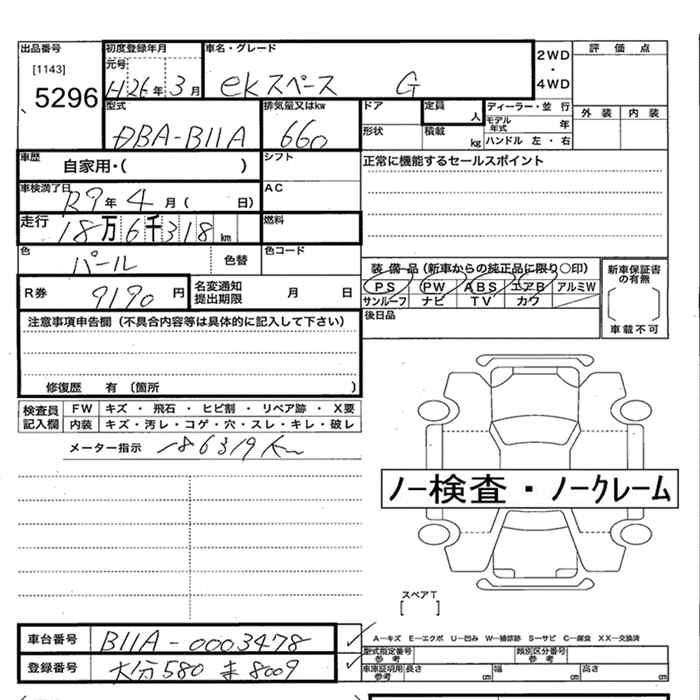 出品番号 [1143] 5296
初度登録年月 元号 H26年 3月
車名・グレード ekスペース G
2WD・4WD
評価点
外装 内装
型式 DBA-B11A
排気量又はkw 660
ドア 形状
定員 人
積載 kg
ディーラー・並行
モデル年式 年
ハンドル 左・右
車歴 自家用・( )
シフト
正常に機能するセールスポイント
車検満了日 R9年 4月( 日)
AC
走行 18万6千318km
燃料
色 パール 色替
色コード
装備品(新車からの純正品に限り○印)
PS PW ABS エアB アルミW
サンルーフ ナビ TV カワ
新車保証書の有無
[ ]
車載不可
R券 9190円
名変通知提出期限 月 日
後日品
注意事項申告欄(不具合内容等は具体的に記入して下さい)
修復歴 有 (箇所 )
検査員記入欄
FW キズ・飛石・ヒビ割・リペア跡・X要
内装 キズ・汚レ・コゲ・穴・スレ・キレ・破レ
メーター指示 186319km
ノー検査・ノークレーム
スペアT
[ ]
車台番号 B11A-0003478
A-キズ E-エクボ U-凹み W-補修跡 S-サビ C-腐食 XX-交換済
登録番号 大分580 8009
型式指定番号 参考
類別区分番号 参考
車庫証明用 参考 長さ cm 幅 cm 高さ cm